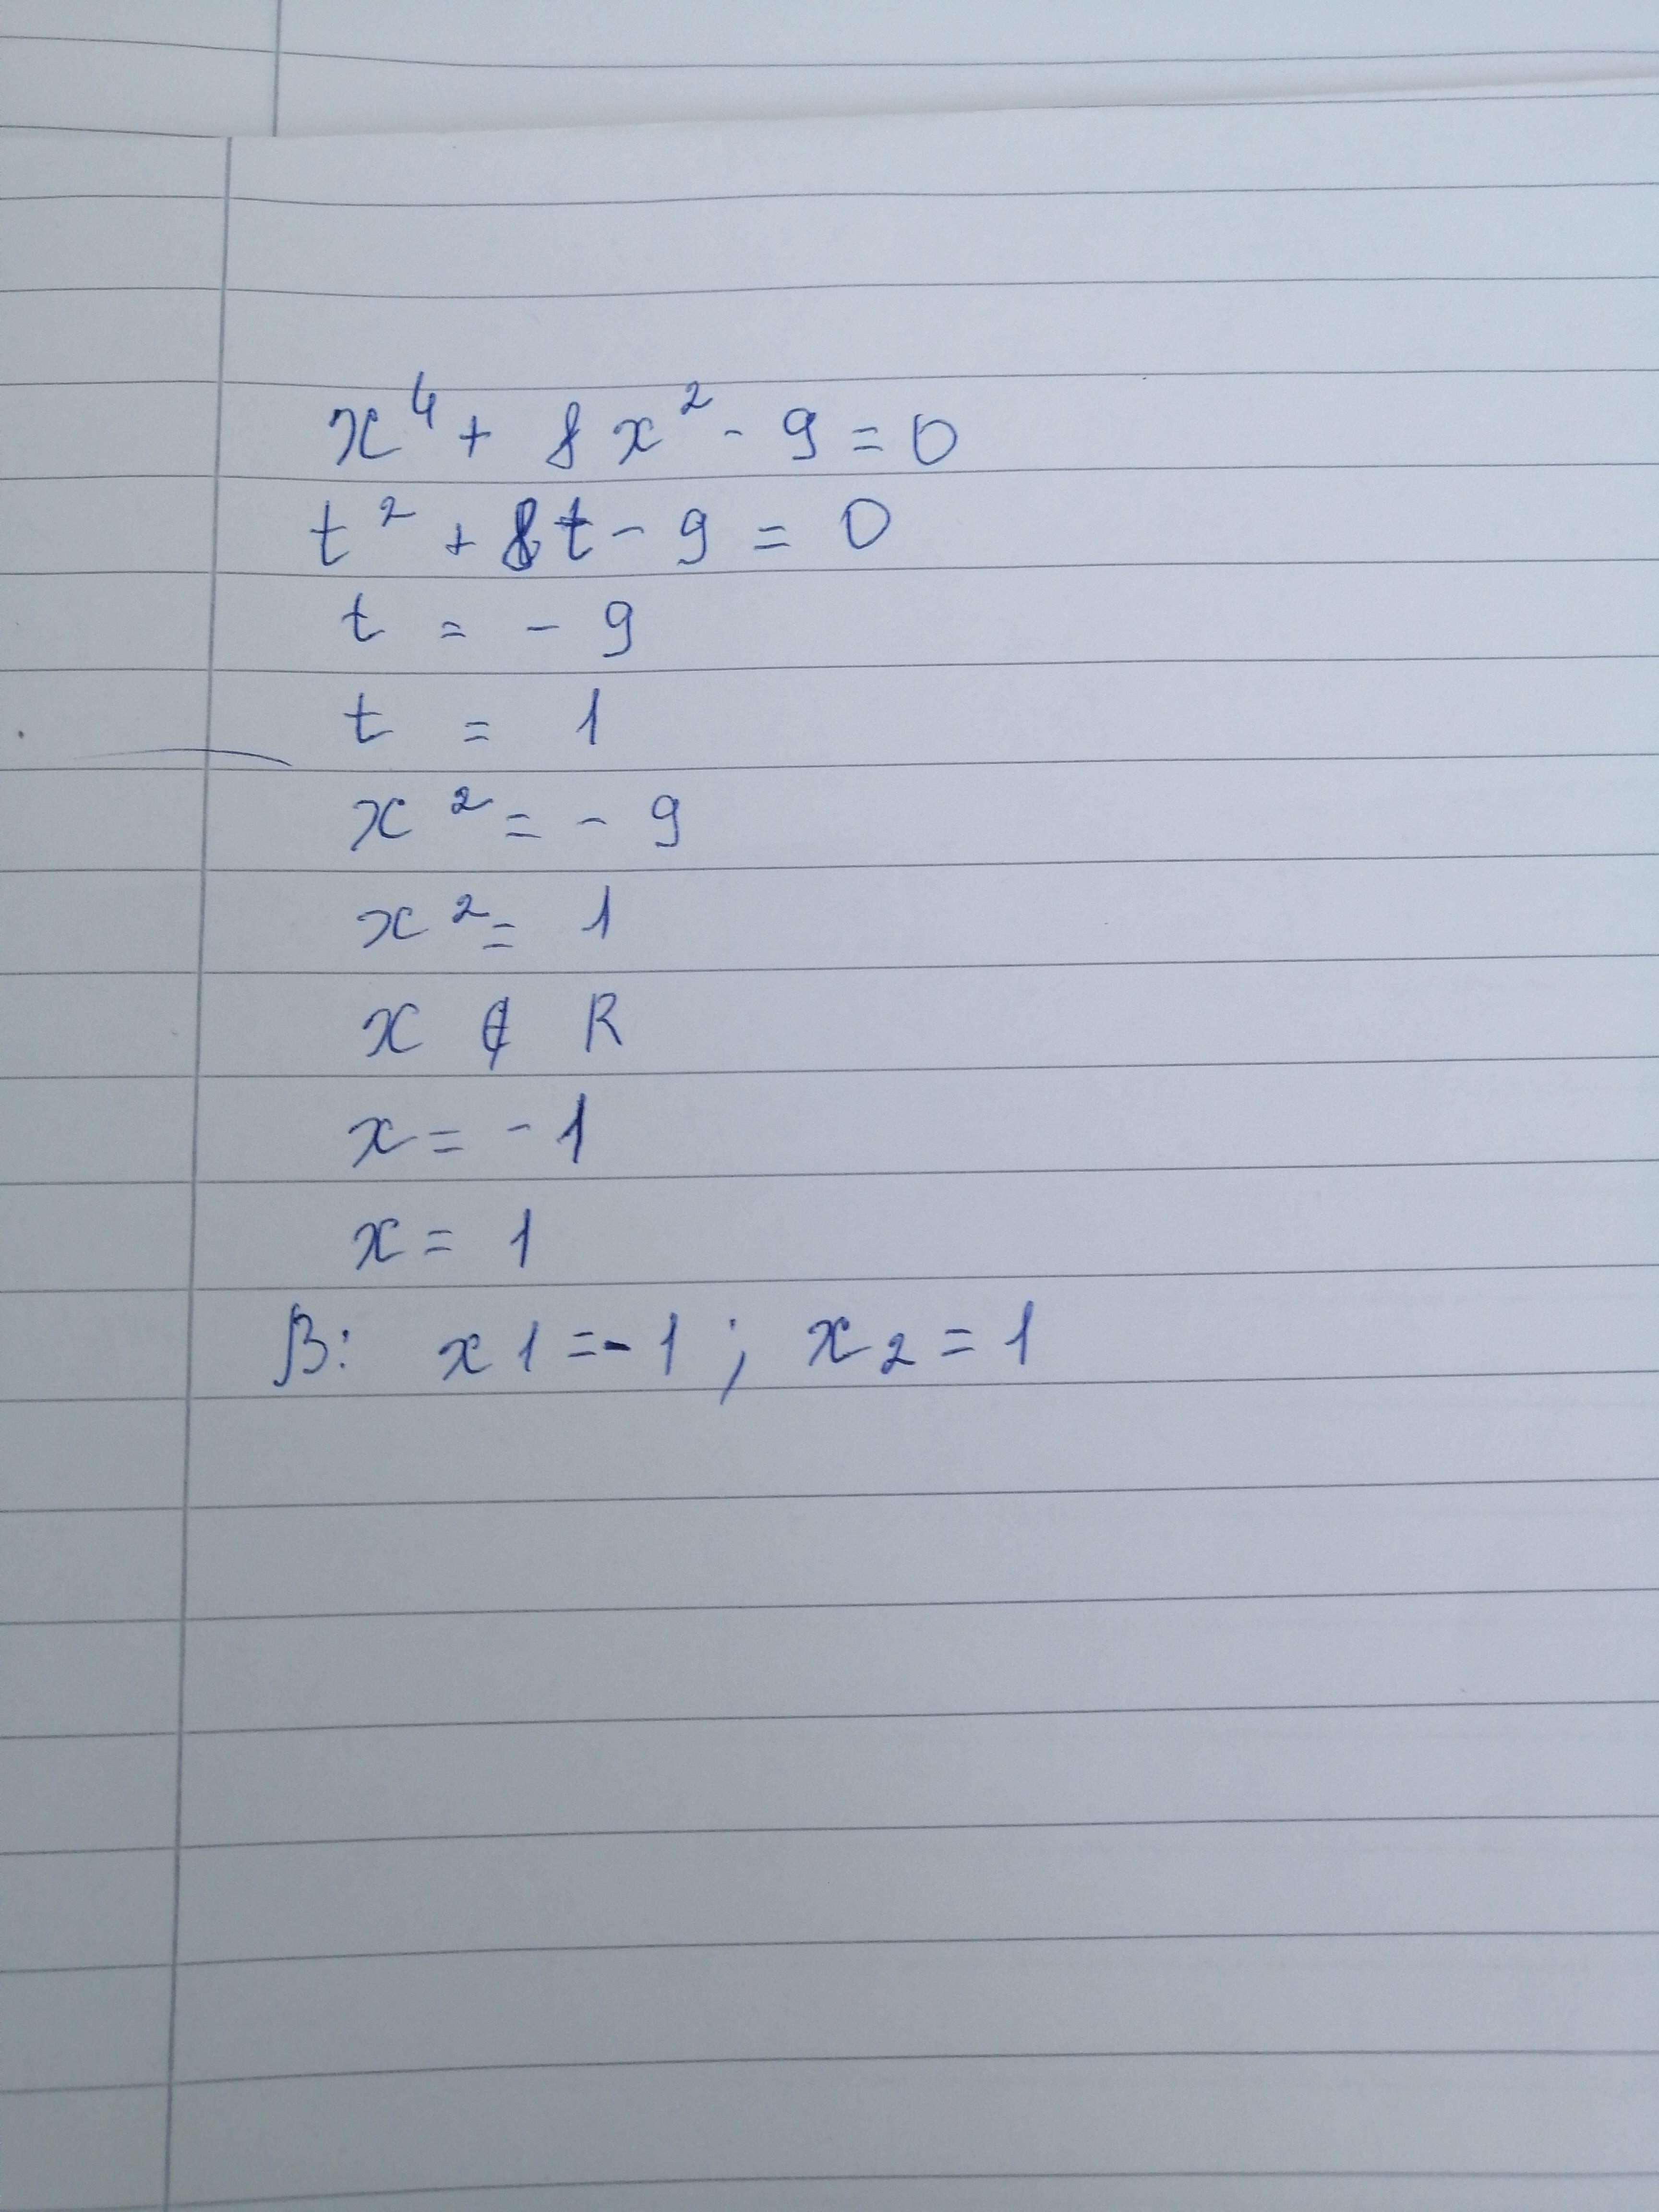 x⁴ + 8x² - 9 = 0
t² + 8t - 9 = 0
t = - 9
t = 1
x² = - 9
x² = 1
x ∉ R
x = - 1
x = 1
В: x1 = -1 ; x₂ = 1